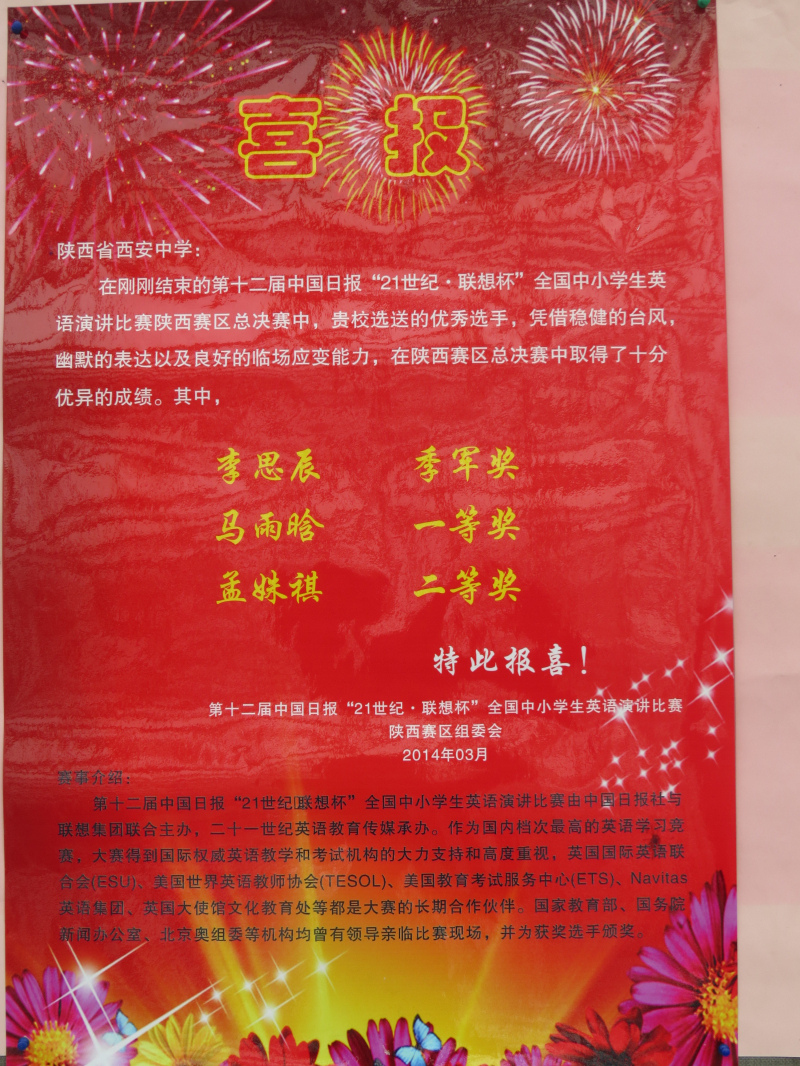 喜报
陕西省西安中学：
在刚刚结束的第十二届中国日报“21世纪·联想杯”全国中小学生英
语演讲比赛陕西赛区总决赛中，贵校选送的优秀选手，凭借稳健的台风，
幽默的表达以及良好的临场应变能力，在陕西赛区总决赛中取得了十分
优异的成绩。其中，
李思辰 季军奖
马雨晗 一等奖
孟姝祺 二等奖
特此报喜！
第十二届中国日报“21世纪·联想杯”全国中小学生英语演讲比赛
陕西赛区组委会
2014年03月
赛事介绍：
第十二届中国日报“21世纪联想杯”全国中小学生英语演讲比赛由中国日报社与
联想集团联合主办，二十一世纪英语教育传媒承办。作为国内档次最高的英语学习竞
赛，大赛得到国际权威英语教学和考试机构的大力支持和高度重视，英国国际英语联
合会(ESU)、美国世界英语教师协会(TESOL)、美国教育考试服务中心(ETS)、Navitas
英语集团、英国大使馆文化教育处等都是大赛的长期合作伙伴。国家教育部、国务院
新闻办公室、北京奥组委等机构均曾有领导亲临比赛现场，并为获奖选手颁奖。